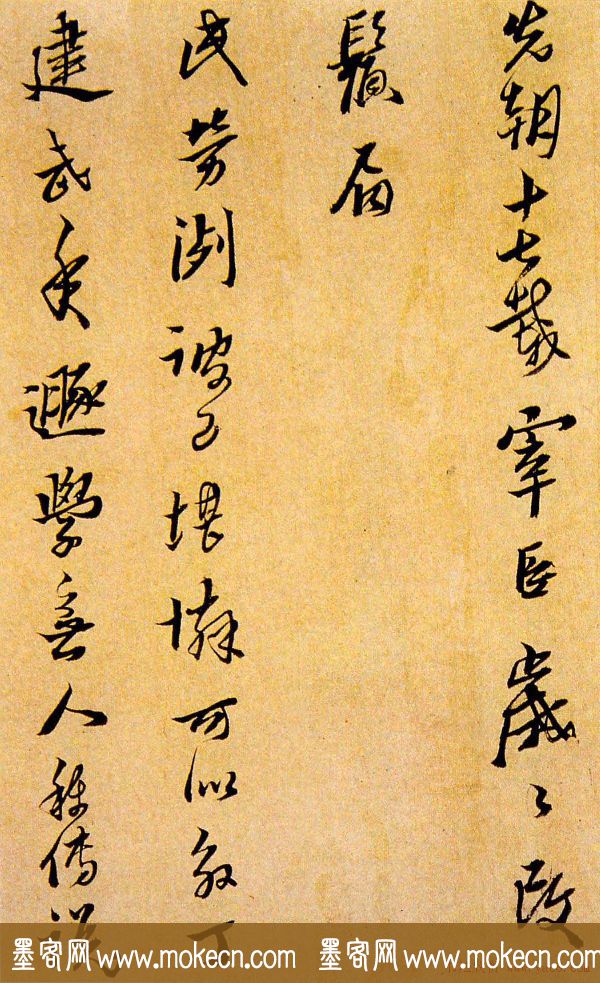 先朝十七載宰臣歲〻改
鬢眉
民勞測被已堪憐可似
建武年學無人傳
墨客网 www.mokecn.com 墨客网 www.mokecn.com